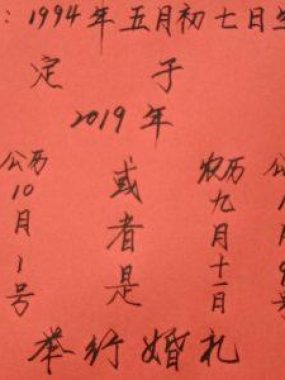 ：1994年五月初七日生
定于
2019年
公历10月1号
或者是
农历九月十一日
举行婚礼